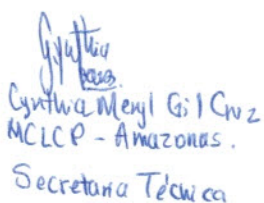 Cynthia Meryl Gil Cruz
MCLCP - Amazonas.
Secretaria Técnica